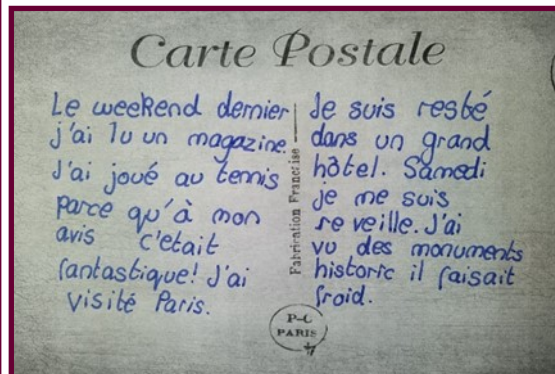 Carte Postale
Le weekend dernier
j'ai lu un magazine.
J'ai joué au tennis
parce qu'à mon
avis c'etait
fantastique! J'ai
visité Paris.
Fabrication Française
Je suis resté
dans un grand
hôtel. Samedi
je me suis
re veille. J'ai
vu des monuments
historic il faisait
froid.
P-C
PARIS